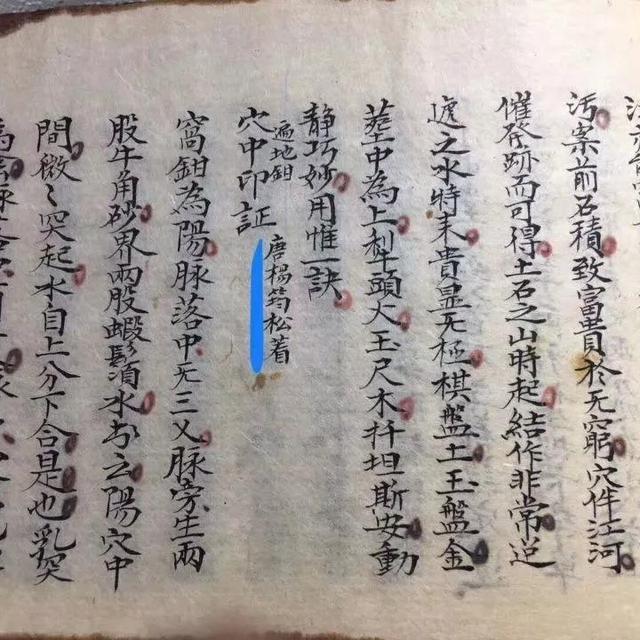 汚案前石積致富貴於无窮穴作江河
催發跡而可得土石之山時起結作非常逆
遶之水特未貴盡无極棋盤土玉盤金
莖中為上犁頭火玉尺木枰坦斯安動
静巧妙用惟一訣
穴中印証
遍地鉗
唐楊筠松着
窩鉗為陽脉落中无三叉脉旁生兩
股牛角砂界兩股蝦鬚水出云陽穴中
間微〻突起水自上分下合是也乳突